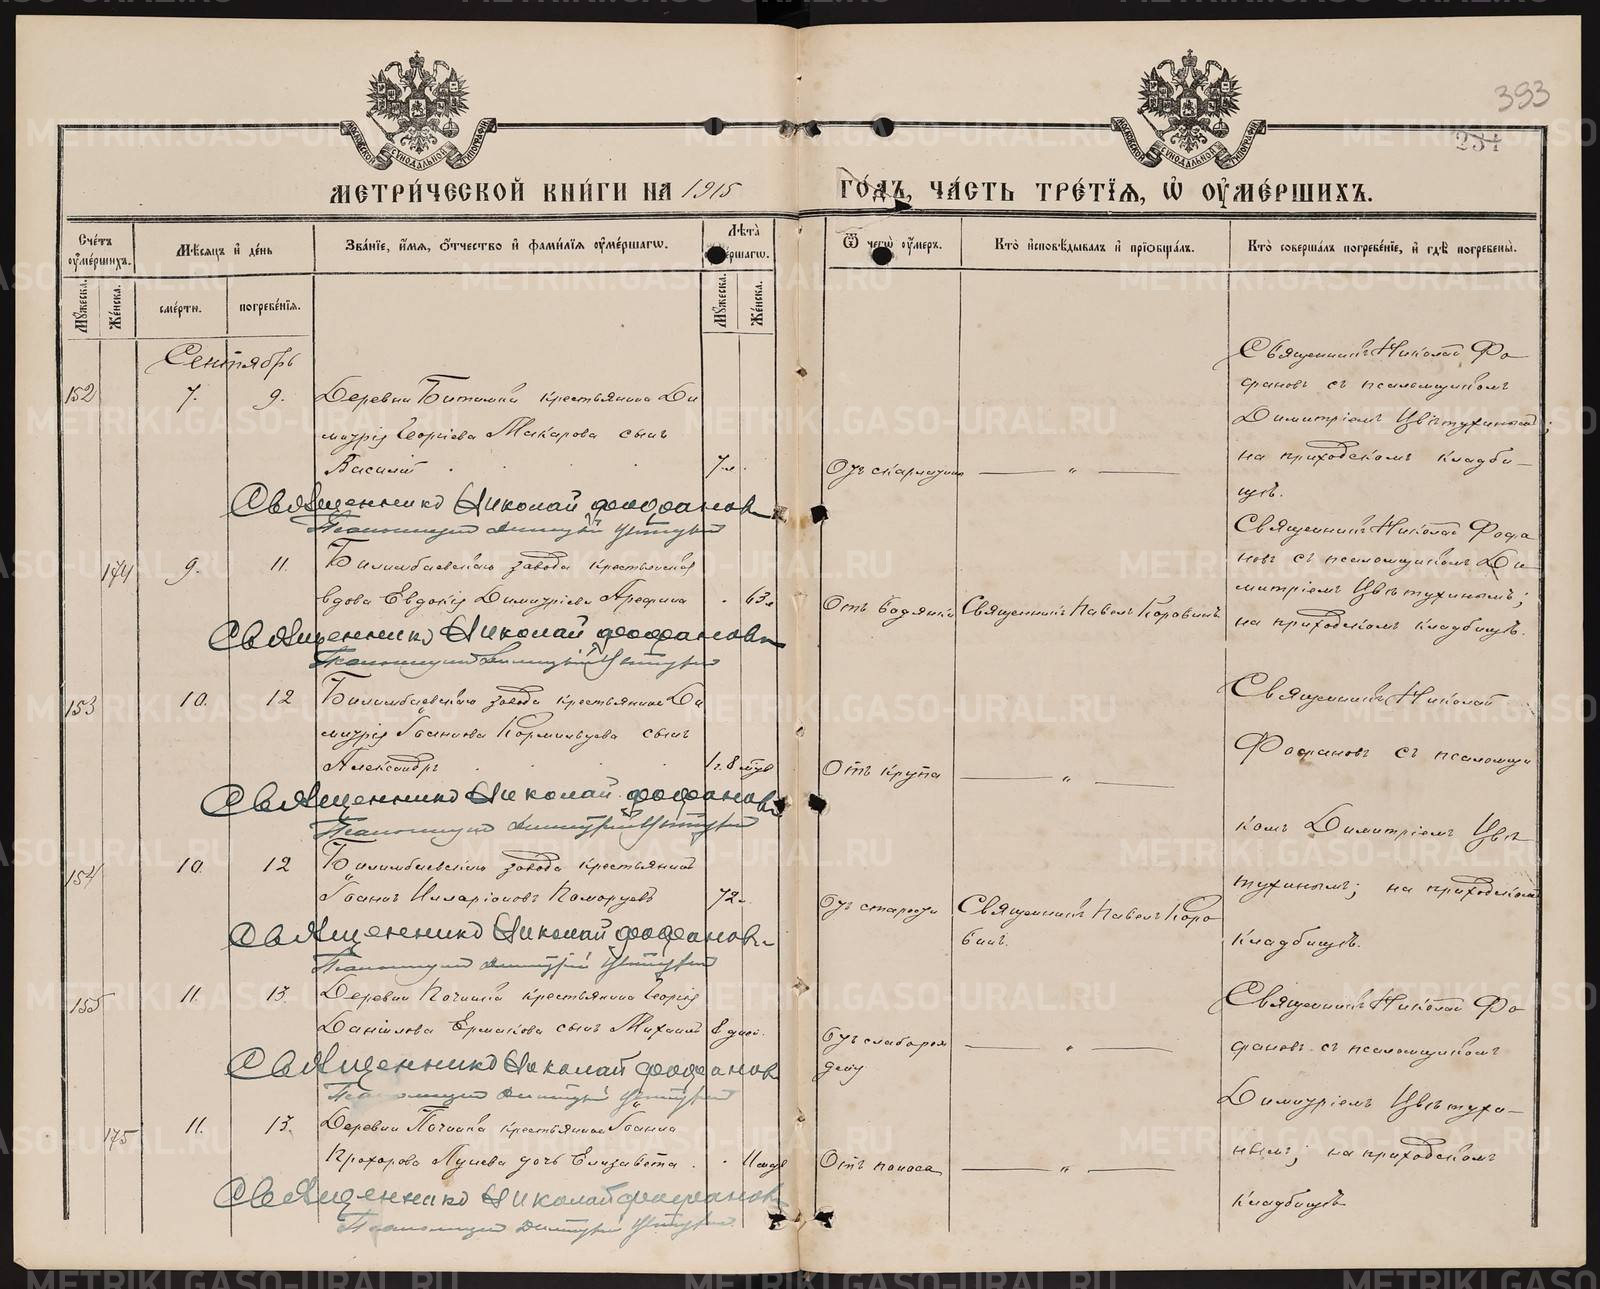 393
234
МЕТРИ́ЧЕСКОЙ КНИ́ГИ НА 1915 ГО́ДЪ, ЧА́СТЬ ТРЕ́ТІЯ, Ѡ ОУМЕ́РШИХЪ.
Сче́тъ оуме́ршихъ.
Мѣ́сяцъ и де́нь
Зва́нїе, и́мя, о́тчество и фами́лїя оуме́ршагѡ.
Лѣ́та оуме́ршагѡ.
Ѿ чегѡ̀ оу́меръ.
Кто̀ исповѣ́дывалъ и прїѡбща́лъ.
Кто̀ соверша́лъ погребе́нїе, и гдѣ̀ погребены̀.
Мꙋ́жеска.
Же́нска.
сме́рти.
погребе́нїя.
Мꙋ́жеска.
Же́нска.
Сентябрь
152 7. 9. Деревни Битимки крестьянина Ди
митрія Георгіева Макарова сынъ
Василій 7 л.
Отъ скарлатины — „ —
Священникъ Николай Фо
фановъ съ псаломщикомъ
Димитріемъ Цвѣтухинымъ;
на приходскомъ кладби-
щѣ.
Священникъ Николай Фофановъ
Псаломщикъ Димитрій Цвѣтухинъ
174 9. 11. Билимбаевскаго завода крестьянская
вдова Евдокія Димитріева Арефина 63 л.
Отъ водянки
Священникъ Павелъ Коровинъ
Священникъ Николай Фофа
новъ съ псаломщикомъ Ди
митріемъ Цвѣтухинымъ;
на приходскомъ кладбищѣ.
Священникъ Николай Фофановъ
Псаломщикъ Димитрій Цвѣтухинъ
153 10. 12 Билимбаевскаго завода крестьянина Ди
митрія Іоаннова Кормильцева сынъ
Александръ 1 г. 8 мцв
Отъ крупа — „ —
Священникъ Николай
Фофановъ съ псаломщи
комъ Димитріемъ Цвѣ
тухинымъ; на приходскомъ
кладбищѣ.
Священникъ Николай Фофановъ
Псаломщикъ Димитрій Цвѣтухинъ
154 10. 12 Билимбаевскаго завода крестьянинъ
Іоаннъ Илларіоновъ 72 л.
Отъ старости
Священникъ Павелъ Коро
винъ.
Священникъ Николай Фофановъ
Псаломщикъ Димитрій Цвѣтухинъ
155 11. 13. Деревни Починка крестьянина Георгія
Даніилова Ермакова сынъ Михаилъ 8 дней.
Отъ слаборож
денія — „ —
Священникъ Николай Фо
фановъ съ псаломщикомъ
Димитріемъ Цвѣтухи-
нымъ; на приходскомъ
кладбищѣ
Священникъ Николай Фофановъ
Псаломщикъ Димитрій Цвѣтухинъ
175 11. 13. Деревни Починка крестьянина Іоанна
Прохорова дочь Елизавета 11 мцв
Отъ поноса — „ —
Священникъ Николай Фофановъ
Псаломщикъ Димитрій Цвѣтухинъ
METRIKI.GASO-URAL.RU